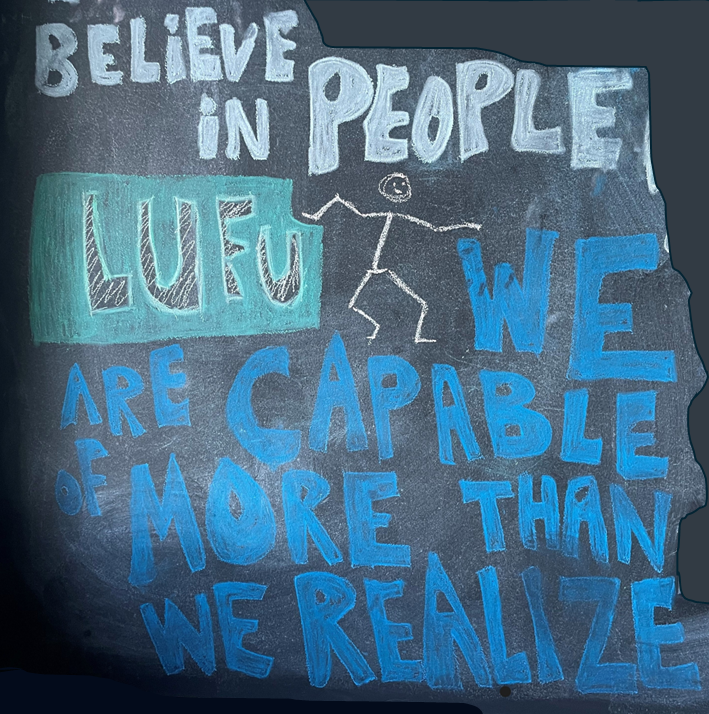 BELiEVE
iN PEOPLE
LUFU
WE
ARE CAPABLE
OF MORE THAN
WE REALIZE